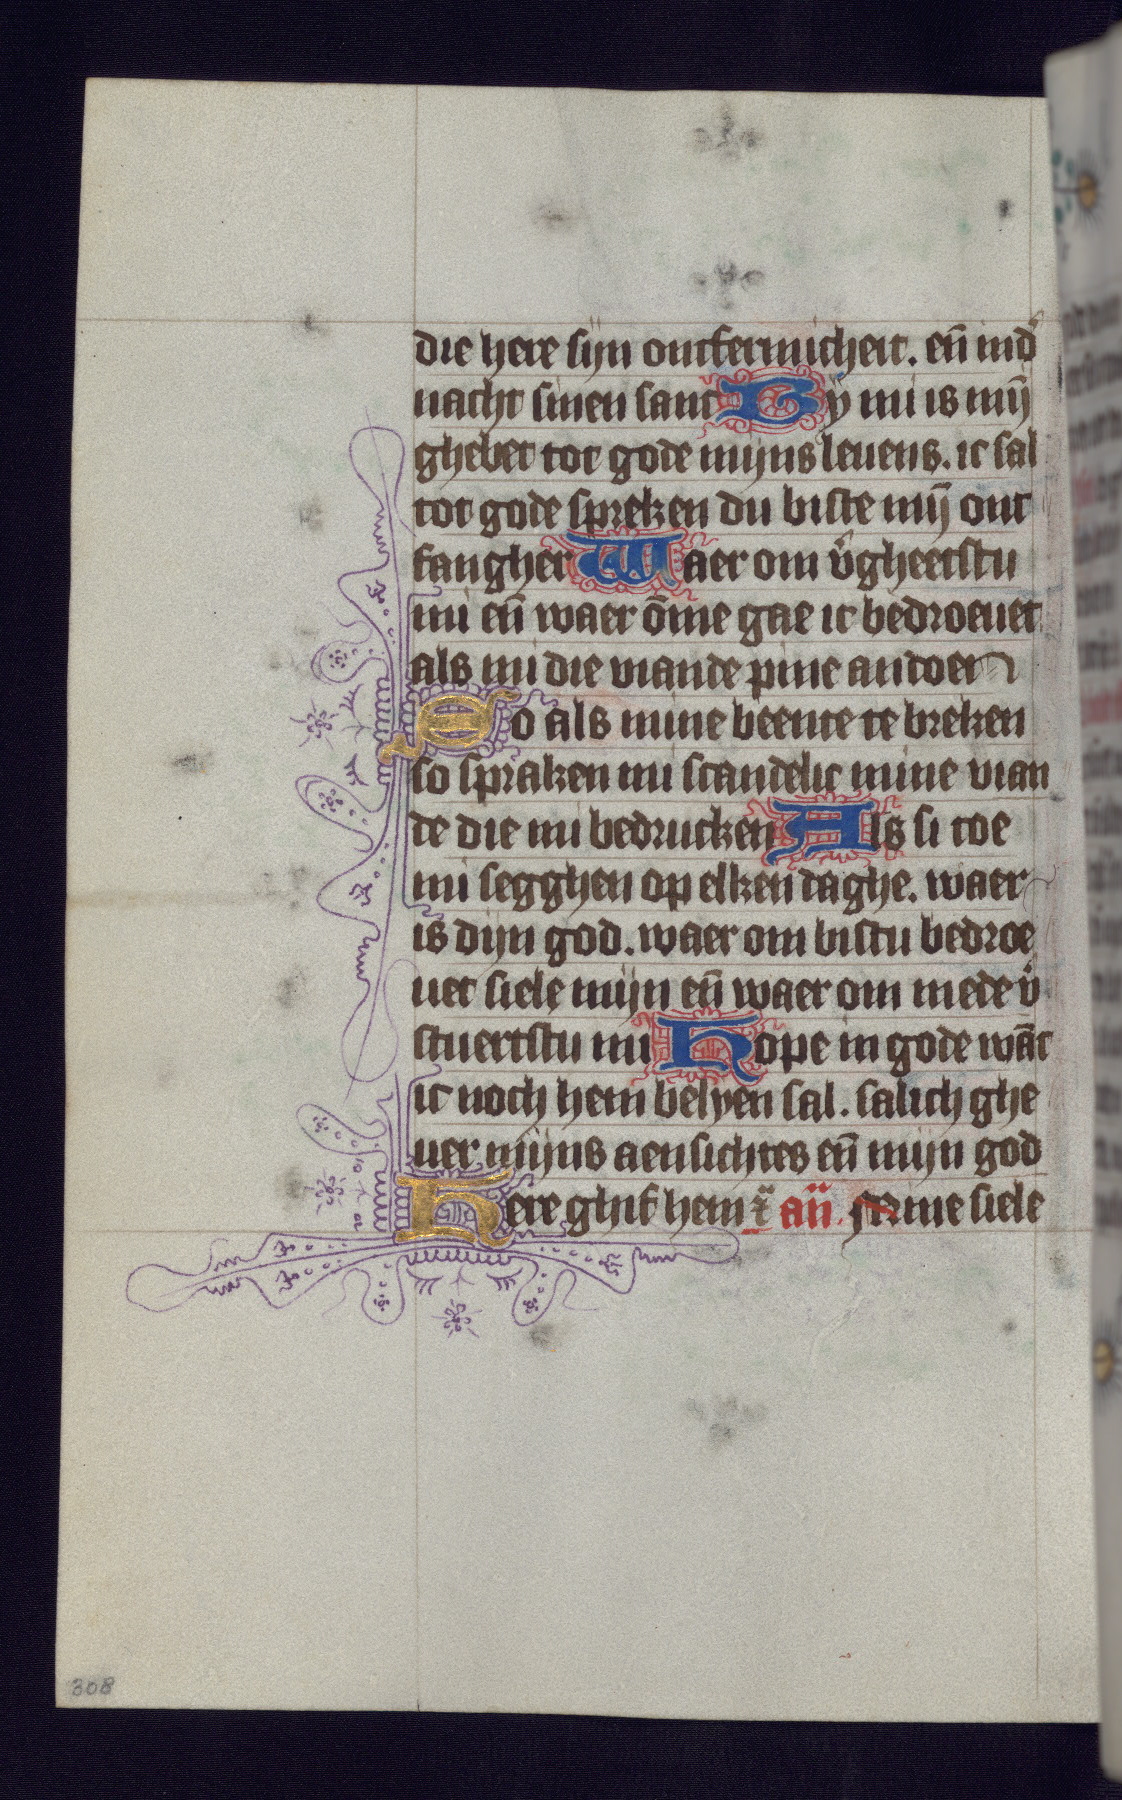 die here sijn ontfermicheit. eñ in d̕
nacht sinen sanc By mi is mij̄
ghebet tot gode mijns leuens. ic sal
tot gode spreken du biste mij̄ ont
fangher Waer om v̕gheetstu
mi eñ waer ōme gae ic bedroeuet
als mi die viande pine andoen
So als mine beente te breken
so spraken mi scandelic mine vian
de die mi bedrucken Als si toe
mi segghen op elken daghe. waer
is dijn god. waer om bistu bedroe
uet siele mijn eñ waer om mede v̕
stuerstu mi Hope in gode wāt
ic noch hem belyen sal. salich ghe
uer mijns aensichtes eñ mijn god
Here ghif hem añ. mine siele
308